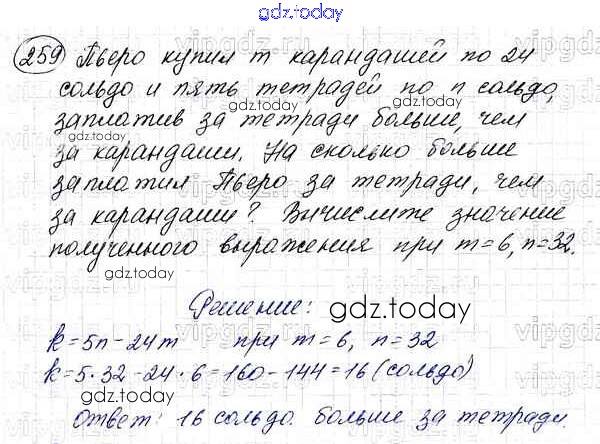 gdz.today
259 Пьеро купил m карандашей по 24
сольдо и пять тетрадей по n сольдо,
gdz.today
заплатив за тетради больше, чем
за карандаши. На сколько больше
заплатил Пьеро за тетради, чем
за карандаши? Вычислите значение
полученного выражения при m=6, n=32.
gdz.today
Решение: gdz.today
k=5n-24m при m=6, n=32
k=5·32-24·6=160-144=16 (сольдо)
gdz.today
Ответ: 16 сольдо больше за тетради.